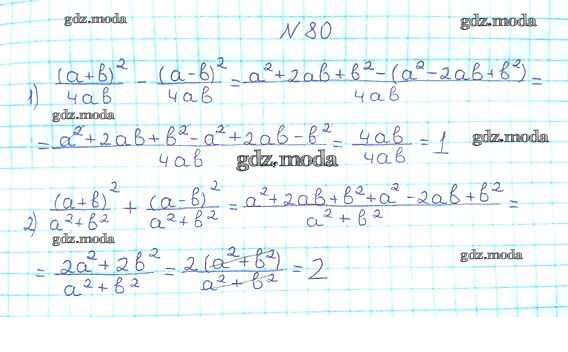 gdz.moda
N 80
gdz.moda
1) (a+b)²/4ab - (a-b)²/4ab = a²+2ab+b²-(a²-2ab+b²)/4ab =
gdz.moda
= a²+2ab+b²-a²+2ab-b²/4ab = 4ab/4ab = 1
gdz.moda
gdz.moda
2) (a+b)²/a²+b² + (a-b)²/a²+b² = a²+2ab+b²+a²-2ab+b²/a²+b² =
gdz.moda
= 2a²+2b²/a²+b² = 2(a²+b²)/a²+b² = 2
gdz.moda